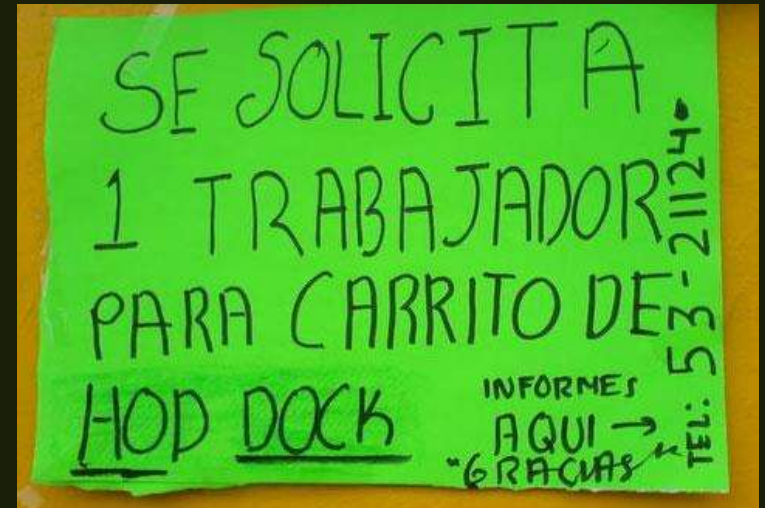 SE SOLICITA
1 TRABAJADOR
PARA CARRITO DE
HOD DOCK
INFORMES
AQUI →
"GRACIAS"
TEL: 53-21124.